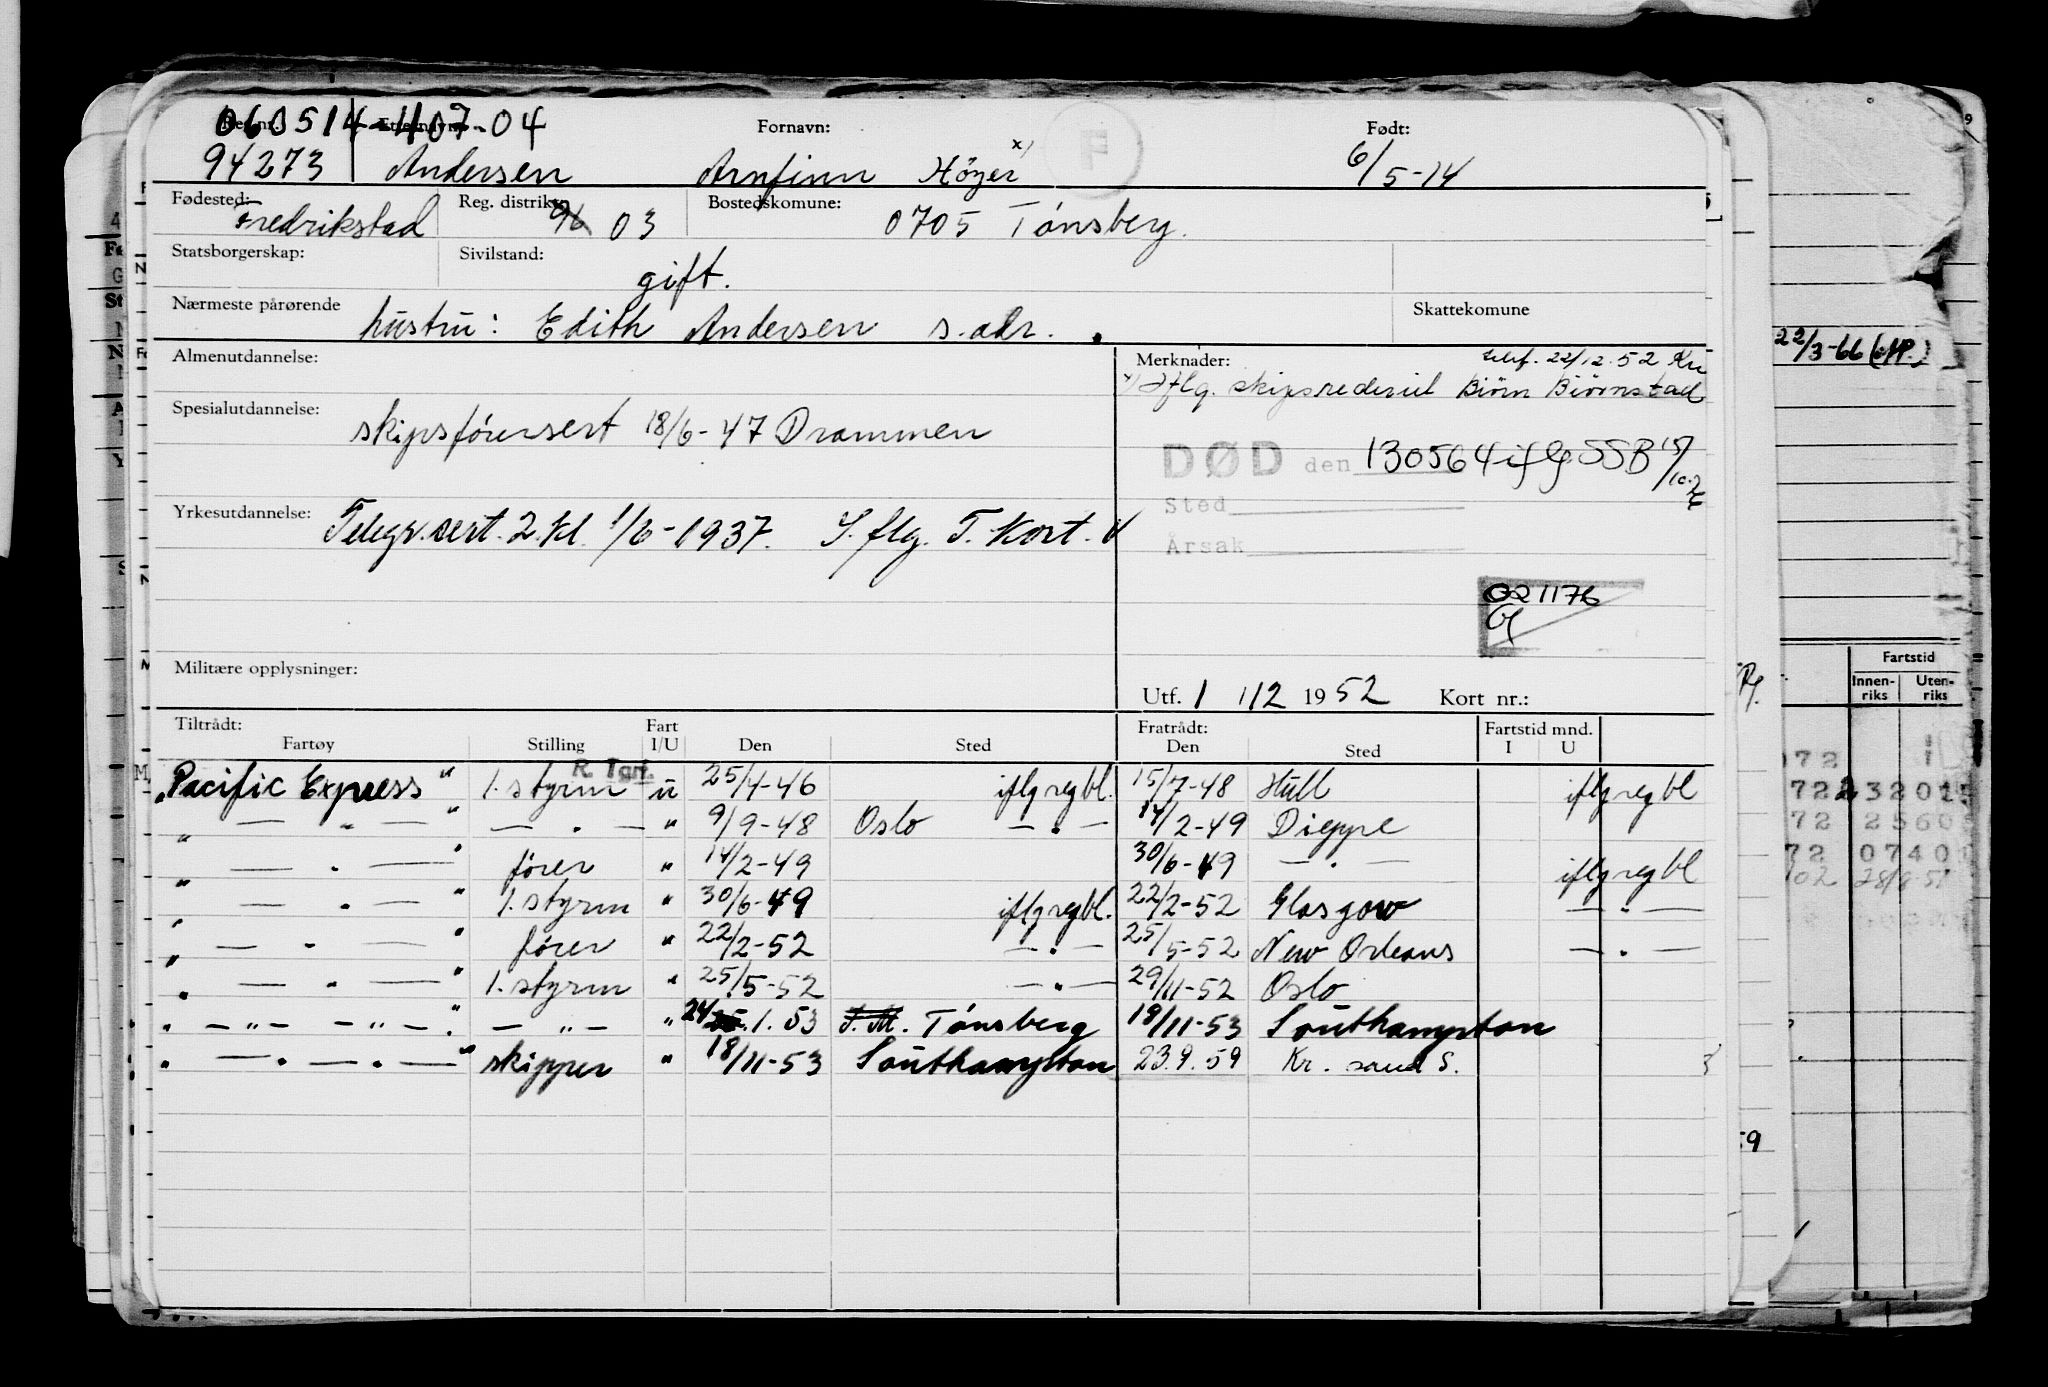 060514-40704
Reg.nr. Etternavn: Fornavn: Født:
94273 Andersen Arnfinn Höyer x) 6/5-14
F
Fødested: Reg. distrikt: Bostedskomune:
Fredrikstad 96 03 0705 Tónsberg.
Statsborgerskap: Sivilstand:
gift.
Nærmeste pårørende Skattekomune
hustru: Edith Andersen s. adr.
Almenutdannelse: Merknader: telef. 22/12.52 Kri
x) Iflg. skipsrederiet Biörn Biörnstad
Spesialutdannelse:
skipsförersert 18/6-47 Drammen
DØD den 130564 iflg SSB 15/10.76
Sted
Yrkesutdannelse: Telegr.sert. 2.kl. 1/6-1937. I. flg. T. Kort.
Årsak
021176
Militære opplysninger:
Utf. 1 /12 1952 Kort nr.:
Tiltrådt: Fart Fratrådt: Fartstid mnd.
Fartøy Stilling I/U Den Sted Den Sted I U
R. Tgrf.
"Pacific Express" 1. styrm u 25/4-46 iflg regbl. 15/7-48 Hull iflg regbl
" — " — " — . — " 9/9-48 Oslo — " — 14/2-49 Dieppe
" — " — " fórer " 14/2-49 30/6-49 — " — iflg regbl
" — " — " 1. styrm " 30/6-49 iflg regbl. 22/2-52 Glasgow — " —
" — " — " fórer " 22/2-52 — " — 25/5-52 New Orleans — " —
" — " — " 1. styrm " 25/5-52 — " — 29/11-52 Oslo
" — " — — " — " — " — " 24.1.53 Tónsberg 18/11-53 Southampton
" — " — " — " skipper " 18/11-53 Southampton 23.9.59 Kr. sand S.
22/3-66
Fartstid
Innenriks Utenriks